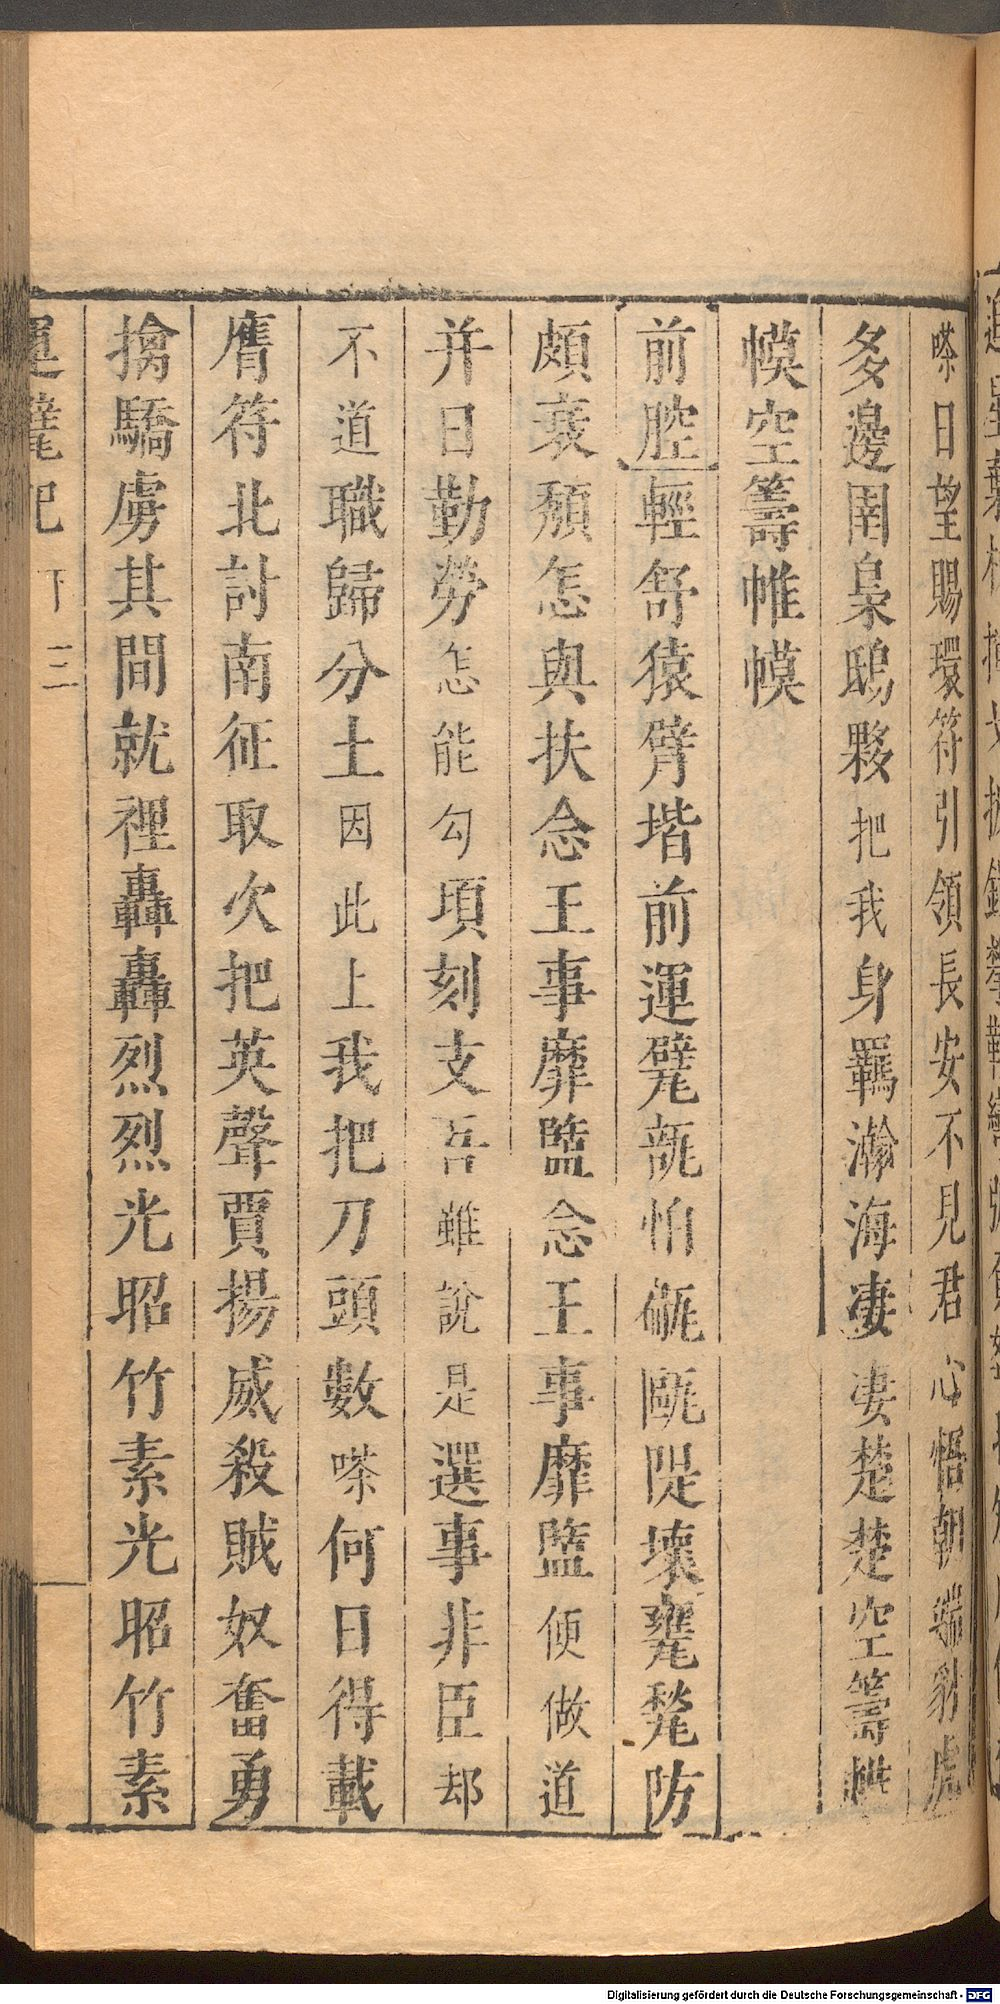 嗏日望賜環符引領長安不見君心悟朝端豺虎
多邊圉梟鴟夥把我身羈瀚海凄凄楚楚空籌帷
幙空籌帷幙
前腔輕舒猿臂堦前運甓翫怕砥甌隄壞甕甃防
頗衰頹怎與扶念王事靡盬念王事靡盬便做道
并日勤勞怎能勾頃刻支吾雖說是選事非臣却
不道職歸分土因此上我把刀頭數嗏何日得載
膺符北討南征取次把英聲賈揚威殺賊奴奮勇
擒驕虜其間就裡轟轟烈烈光昭竹素光昭竹素
運甓記 下 三
Digitalisierung gefördert durch die Deutsche Forschungsgemeinschaft - DFG